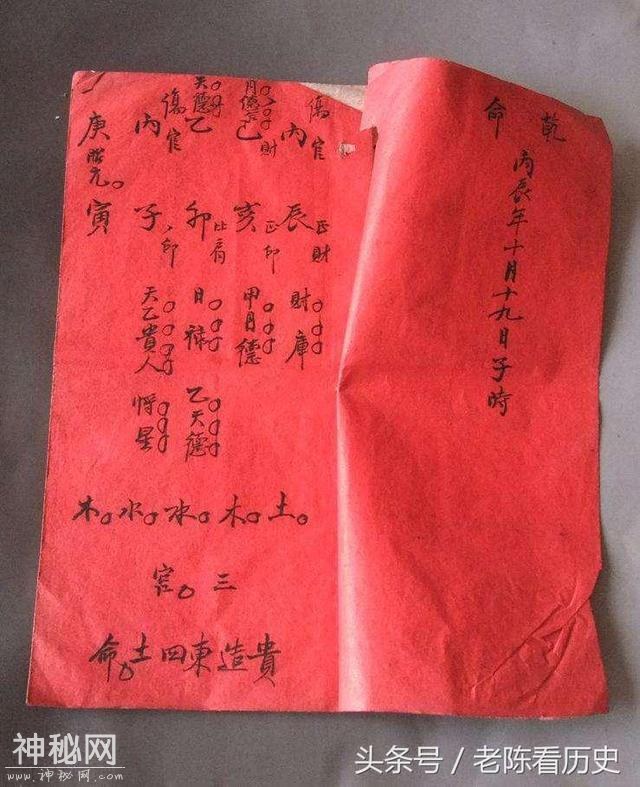 乾命
丙辰年十月十九日子時
傷官
丙辰
正財
財庫
財
己亥
正印
甲月德
天德
乙卯
比肩
日祿
乙天德
傷官
丙子
印
天乙貴人
將星
庚寅
胎元
土木水水木
三
貴造東四土命
神秘网
www.神秘网.com
头条号 / 老陈看历史